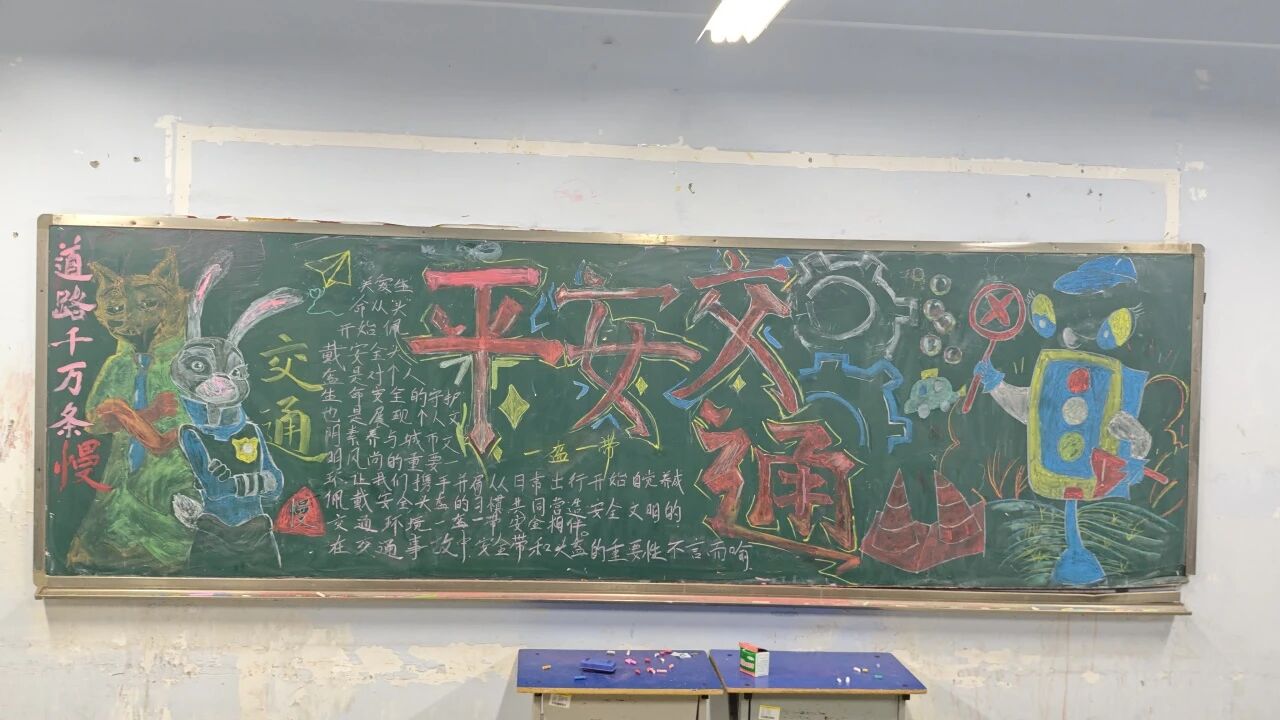 道路千万条慢
交通
平安交通
一盔一带
慢
关爱生
命从头
开始佩
戴安全大
盔是对个人
生命安全的守护
也是展现个人文
明素养与城市文
明风尚的重要一
环让我们携手并肩从日常出行开始自觉养
佩戴安全头盔的习惯共同营造安全文明的
交通环境一盔一带安全相伴
在交通事故中安全带和头盔的重要性不言而喻